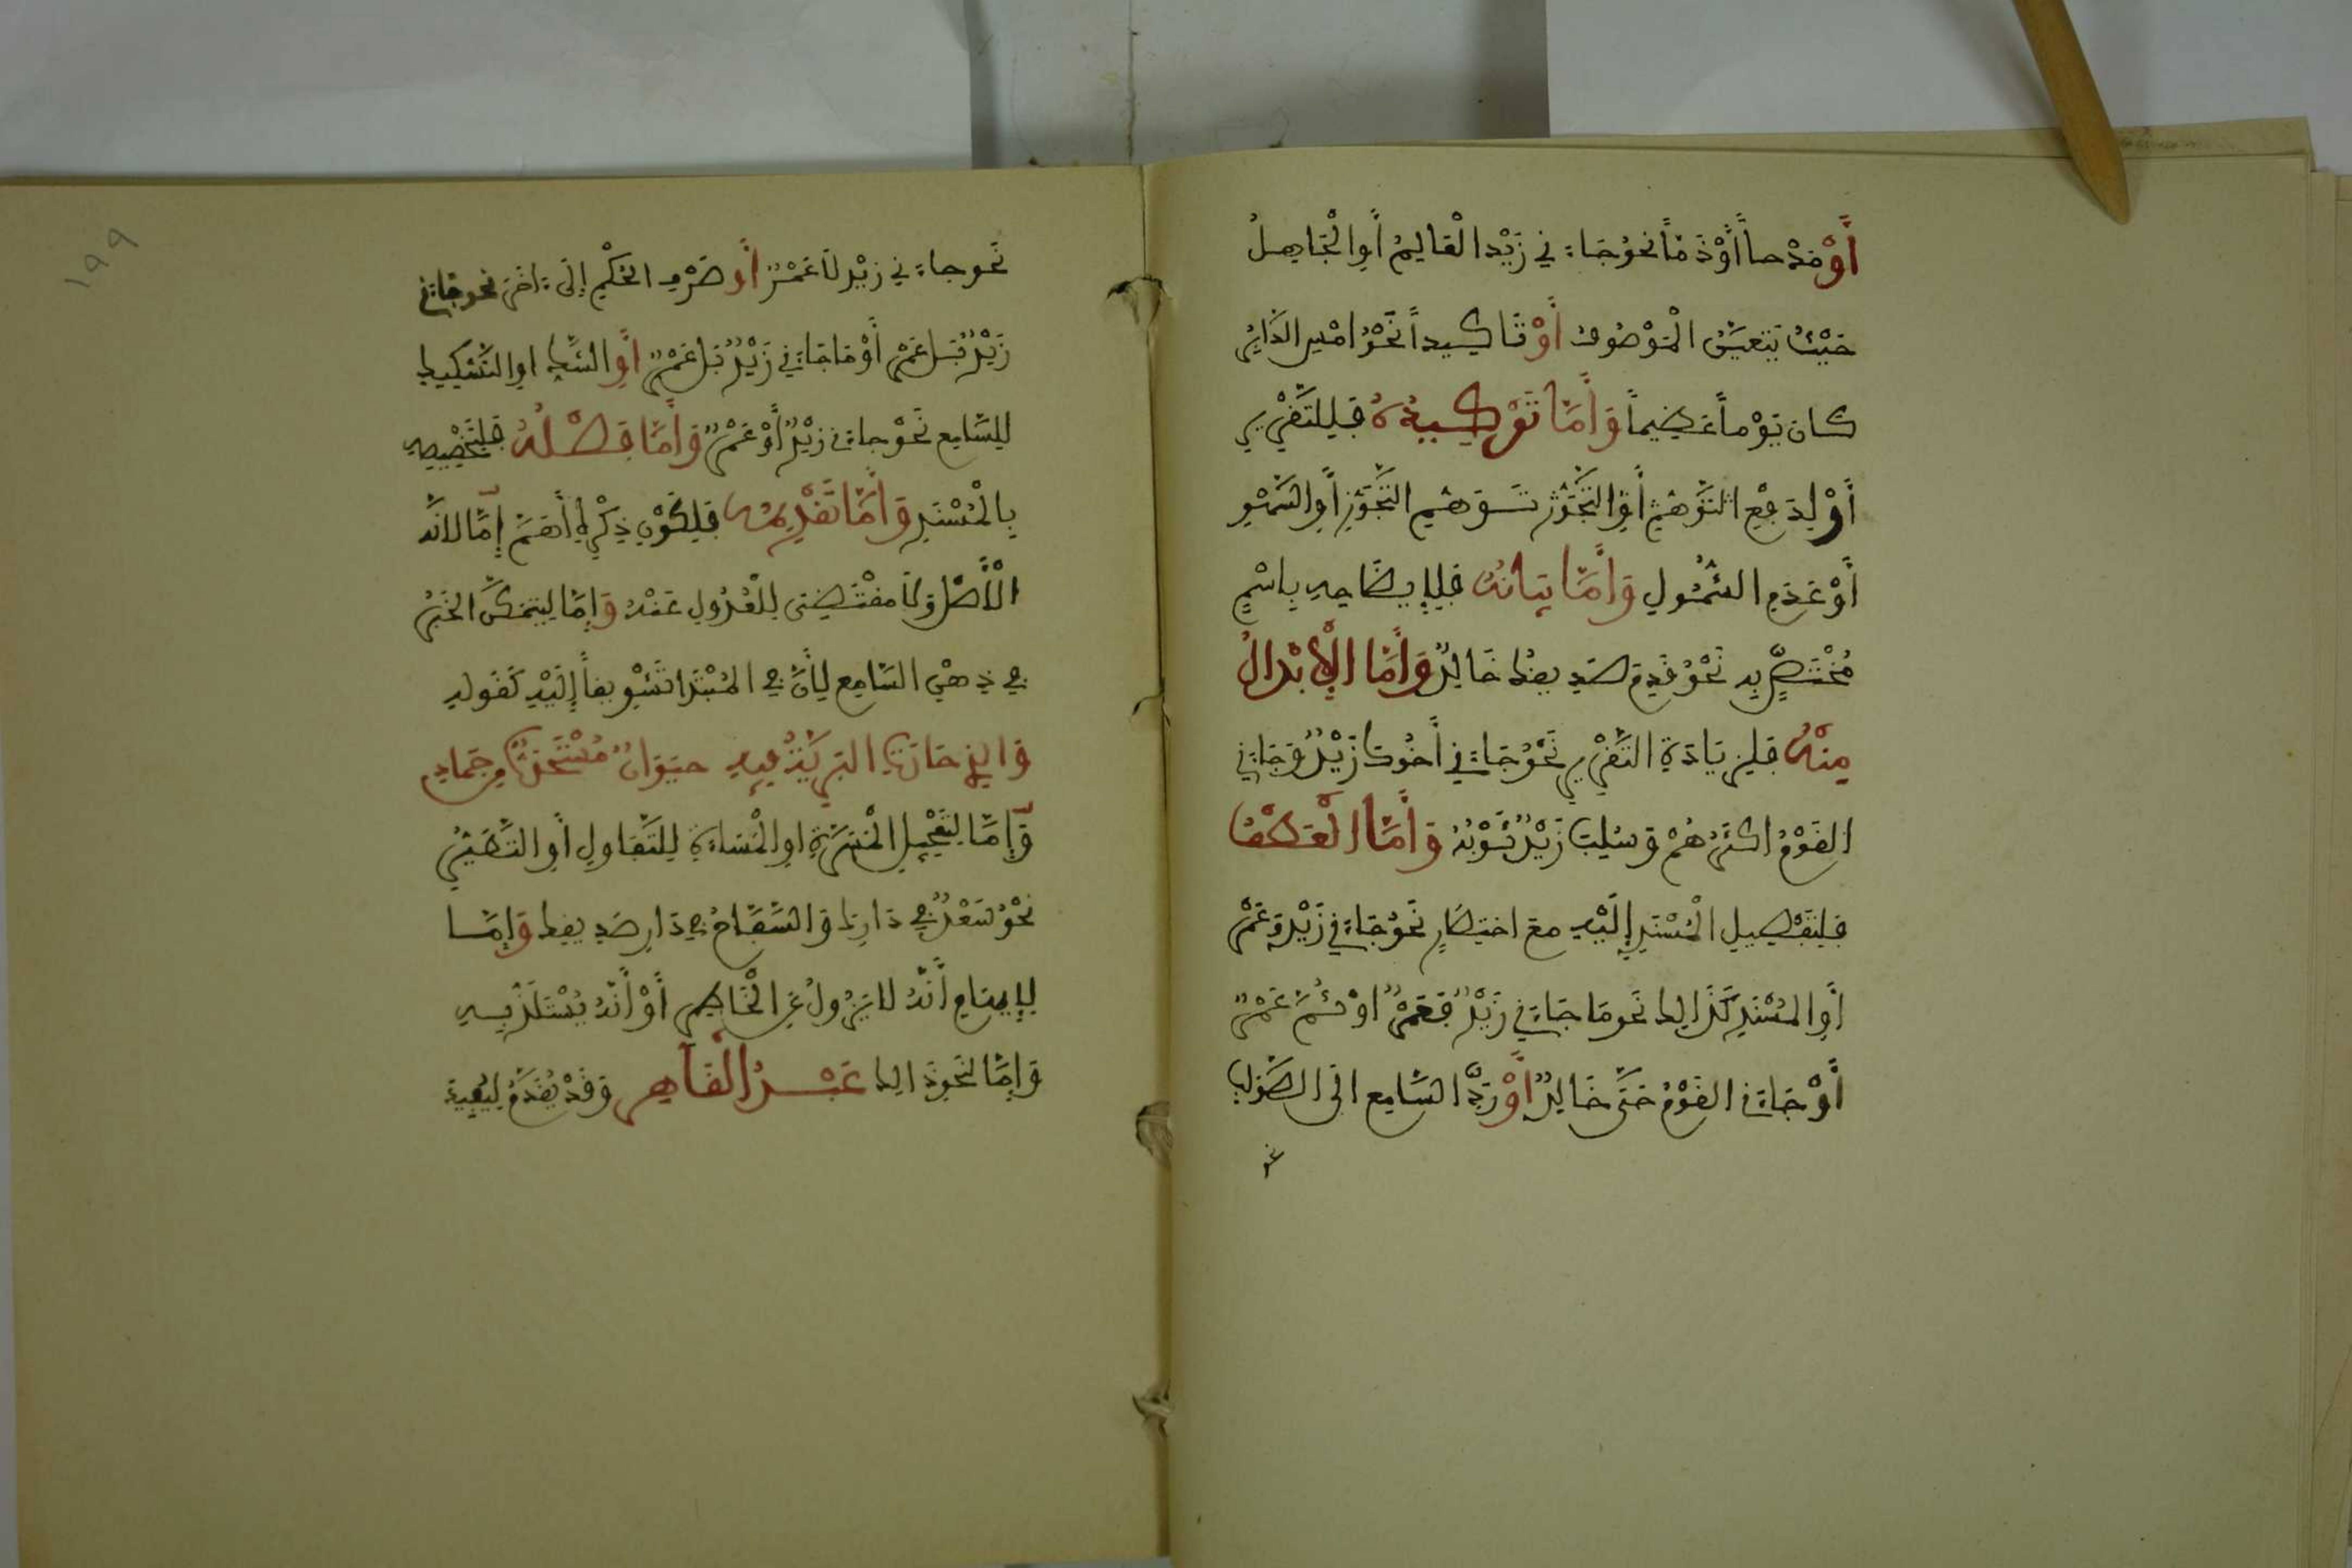 أَوْ مَدْحاً أَوْ ذَمّاً نحوُ جَاءَنِي زَيْدُ الْعَالِمُ أَوِ الْجَاهِلُ
حَيْثُ يَتَعَيَّنُ الْمَوْصُوفُ أَوْ تَاكِيداً نَحْوُ امْسِ الدَّابِرُ
كَانَ يَوْماً عَظِيماً وَأَمَّا تَوْكِيدُهُ فَلِلتَّقْرِيرِ
أَوْ لِدَفْعِ التَّوَهُّمِ أَوِ التَّجَوُّزِ تَوَهُّمِ التَّجَوُّزِ أَوِ السَّهْوِ
أَوْ عَدَمِ الشُّمُولِ وَأَمَّا بَيَانُهُ فَلِإيضَاحِهِ بِاسْمٍ
مُخْتَصٍّ بِهِ نَحْوُ قَدِمَ صَدِيقُكَ خَالِدٌ وَأَمَّا الْإِبْدَالُ
مِنْهُ فَلِزِيَادَةِ التَّقْرِيرِ نَحْوُ جَاءَنِي أَخُوكَ زَيْدٌ وَجَاءَنِي
الْقَوْمُ اكْثَرُهُمْ وَسُلِبَ زَيْدٌ ثَوْبُهُ وَأَمَّا الْعَطْفُ
فَلِتَفْصِيلِ الْمُسْنَدِ إِلَيْهِ مع اختِصَارٍ نَحْوُ جَاءَنِي زَيْدٌ وَعَمْرٌ
أَوِ الْمُسْنَدِ كَذَالِكَ نَحو مَا جَاءَنِي زَيْدٌ فَعَمْرٌ اوْ ثُمَّ عَمْرٌ
أَوْ جَاءَنِي الْقَوْمُ حَتَّى خَالِدٌ أَوْ رَدِّ السَّامِعِ الَى الصَّوَابِ
نحو
نَحو جاءَنِي زَيْدٌ لَا عَمْرٌ أَو صَرْفِ الْحُكْمِ إِلَى ءَاخَرَ نحو جَاءَنِي
زَيْدٌ بَل عَمْرٌ أَوْ مَا جَاءَنِي زَيْدٌ بَل عَمْرٌ أَوِ الشَّكِّ اوِ التَّشْكِيكِ
لِلسَّامِعِ نَحْوُ جاءَنِي زَيْدٌ أَوْ عَمْرٌ وَأَمَّا فَصْلُهُ فَلِتَخْصِيصِهِ
بِالْمُسْنَدِ وَأَمَّا تَقْدِيمُهُ فَلِكَوْنِ ذِكْرِهِ أَهَمَّ إِمَّا لِأَنَّهُ
الْأَصْلُ وَلَا مُقْتَضَى لِلْعُدُولِ عَنْهُ وَإِمَّا لِيَتَمَكَّنَ الْخَبَرُ
فِي ذِهْنِ السَّامِعِ لِأَنَّ فِي الْمُبْتَدَا تَشْوِيقاً إِلَيْهِ كَقَوْلِهِ
وَالذِي حَارَتِ الْبَرِيَّةُ فِيهِ حَيَوَانٌ مُسْتَحْدَثٌ مِنْ جَمَادِ
وَإِمَّا لِتَعْجِيلِ الْمَسَرَّةِ اوِ الْمَسَاءَةِ لِلتَّفَاوُلِ أَوِ التَّطَيُّرِ
نَحْوُ سَعْدٌ فِي دَارِكَ وَالسَّفَّاحُ فِي دَارِ صَدِيقِكَ وَإِمَّا
لِإِيهَامِ أَنَّهُ لَا يَزُولُ عَنِ الْخَاطِرِ أَوْ أَنَّهُ يُسْتَلَذُّ بِهِ
وَإِمَّا لِنَحْوِ ذَالِكَ عَبْدُ الْقَاهِرِ وَقَدْ يُقَدَّمُ لِيُفِيدَ
١٩٩